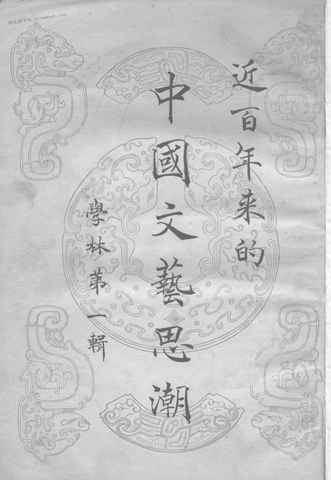 近百年来的
中國文藝思潮
學林第一輯